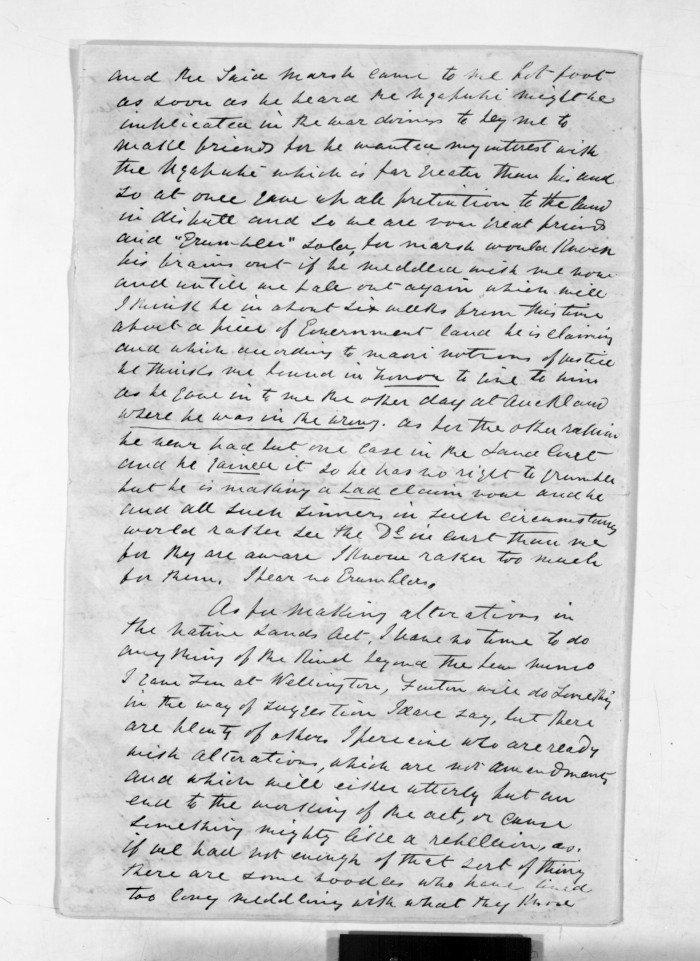 and the Said Marsh came to me hot foot
as soon as he heard the Ngapuhi might be
implicated in the war doings to beg me to
make friends for he wanted my interest with
the Ngapuhi which is far greater than his and
so at once gave up all pretintion to the land
in dispute and so we are now great friends
and "Grumbler" solo, for Marsh would knock
his brains out if he meddled with me now
and untill we fall out again which will
I think be in about six weeks from this time
about a piece of Government land he is claiming
and which according to maori notions of justice
he thinks me bound in honour to give to him
as he gave in to me the other day at Auckland
where he was in the wrong. as for the other
he never had but one case in the Land Court
and he gained it so he has no right to grumble
but he is making a bad claim now and he
and all such sinners in such circumstances
would rather see the Dr in Court than me
for they are aware I know rather too much
for them. I hear no Grumblers.
As for making alterations in
the Native Lands Act, I have no time to do
any thing of the kind beyond the few memo
I gave you at Wellington, Fenton will do something
in the way of suggestion I dare say, but there
are plenty of others I perceive who are ready
with alterations, which are not amendments
and which will either utterly put an
end to the working of the act, or cause
something mighty like a rebellion, as
if we had not enough of that sort of thing
there are some noodles who have lived
too long meddling with what they know